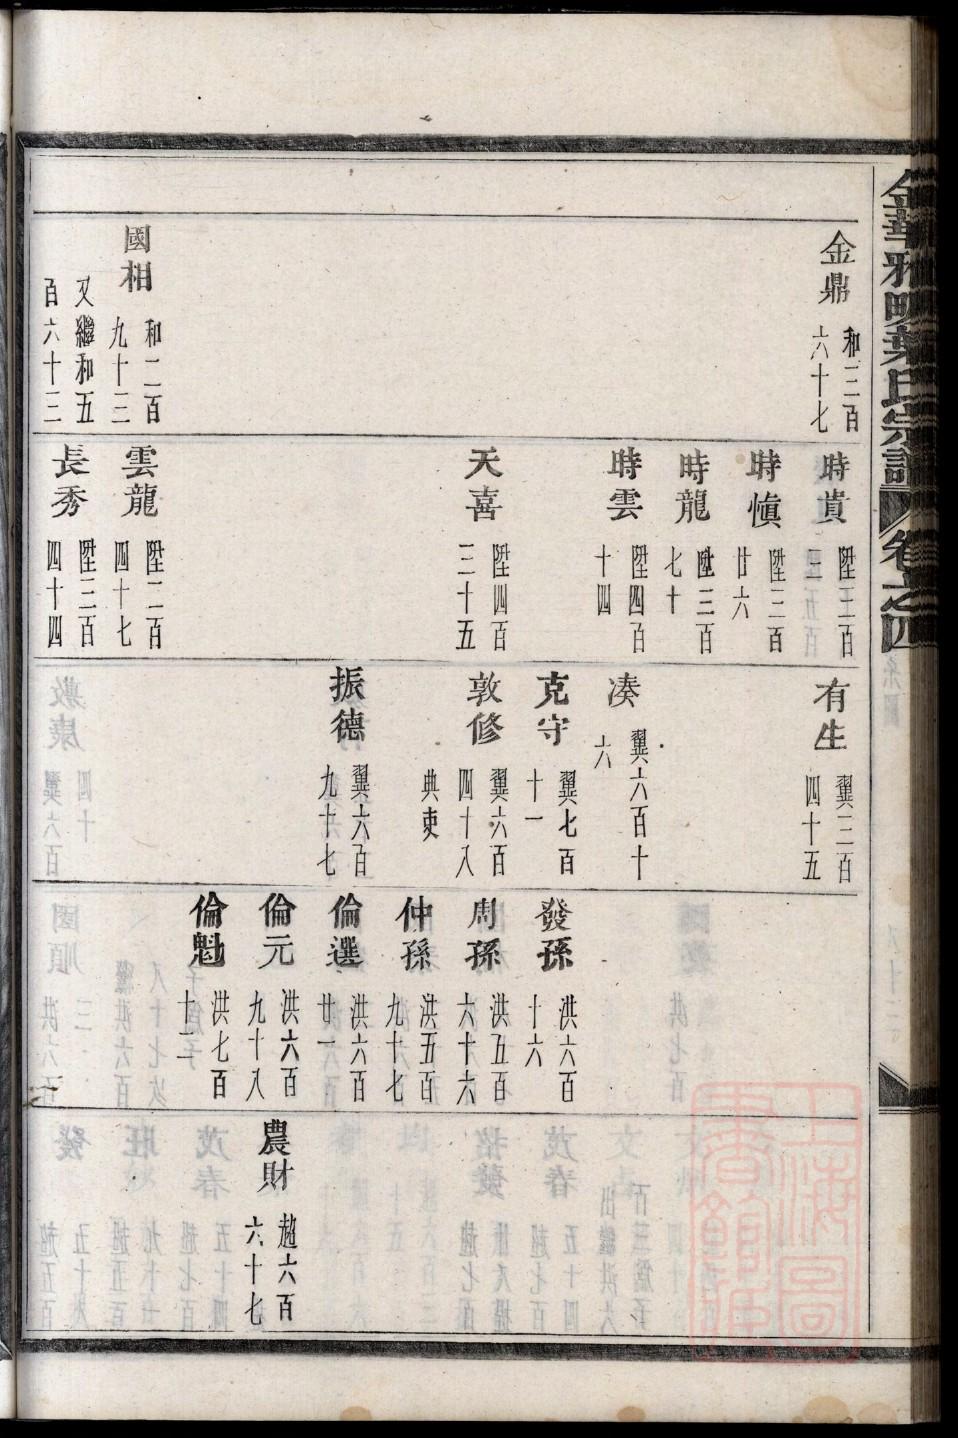 金華雅畈葉氏宗譜
卷之四
金鼎
和三百
六十七
國相
和二百
九十三
又繼和五
百六十三
時貴
陞三百
時愼
陞三百
廿六
時龍
陞三百
七十
時雲
陞四百
十四
天喜
陞四百
三十五
雲龍
陞二百
四十七
長秀
陞三百
四十四
有生
翼三百
四十五
湊
翼六百十
六
克守
翼七百
十一
敦修
翼六百
四十八
典吏
振德
翼六百
九十七
發孫
洪六百
十六
周孫
洪五百
六十六
仲孫
洪五百
九十七
倫選
洪六百
廿一
倫元
洪六百
九十八
倫魁
洪七百
十二
農財
趙六百
六十七
上海圖書館藏